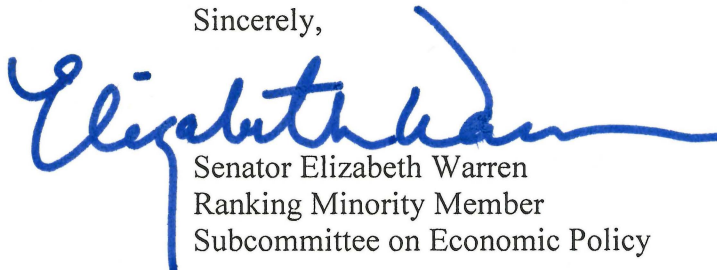 Sincerely,
Elizabeth Warren
Senator Elizabeth Warren
Ranking Minority Member
Subcommittee on Economic Policy